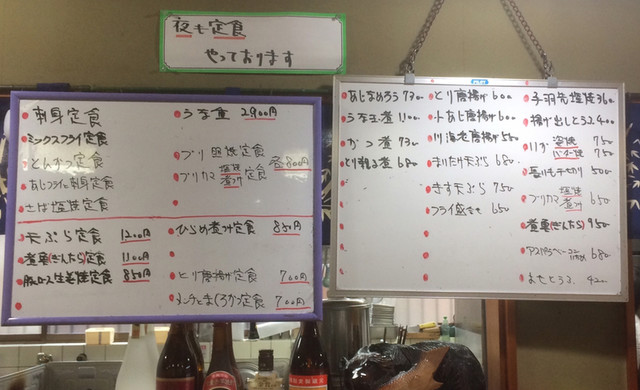 夜も定食
やっております
刺身定食
ミックスフライ定食
とんかつ定食
あじフライと刺身定食
さば塩焼定食
天ぷら定食 1200円
煮魚(ぎんたら)定食 1100円
豚ロース生姜焼定食 850円
うな重 2900円
ブリ照焼定食
ブリカマ 塩焼 煮付 定食
各800円
ひらめ煮付定食 850円
とり唐揚げ定食 700円
メンチとまぐろカツ定食 700円
あじなめろう 730
うな玉煮 1100
かつ煮 730
とり鍋煮 680
とり唐揚げ 600
小あじ唐揚げ 600
川海老唐揚げ 550
きす天ぷら 750
フライ盛合せ 650
手羽先塩焼 360
揚げ出しとうふ 400
いか 塩焼 750
バター焼 750
ブリカマ 塩焼 煮付 650
煮魚(ぎんたら) 950
アスパラベーコン 680